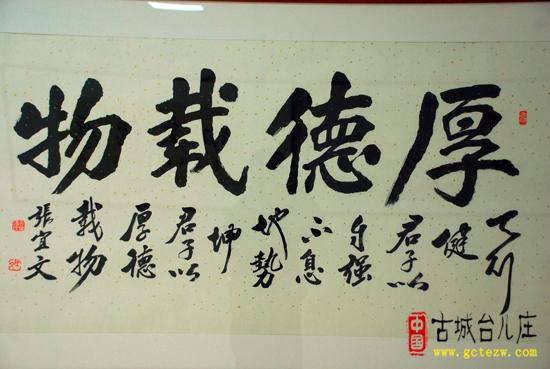 厚德载物
天行
健
君子以
自强
不息
地勢
坤
君子以
厚德
载物
張宜文
中国
古城台儿庄
www.gctezw.com